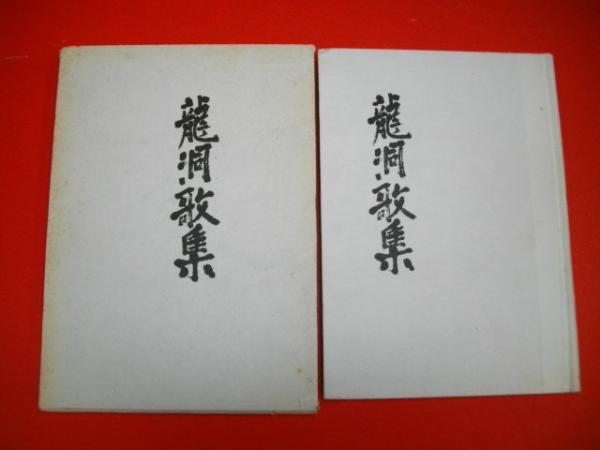 龍洞歌集
龍洞歌集